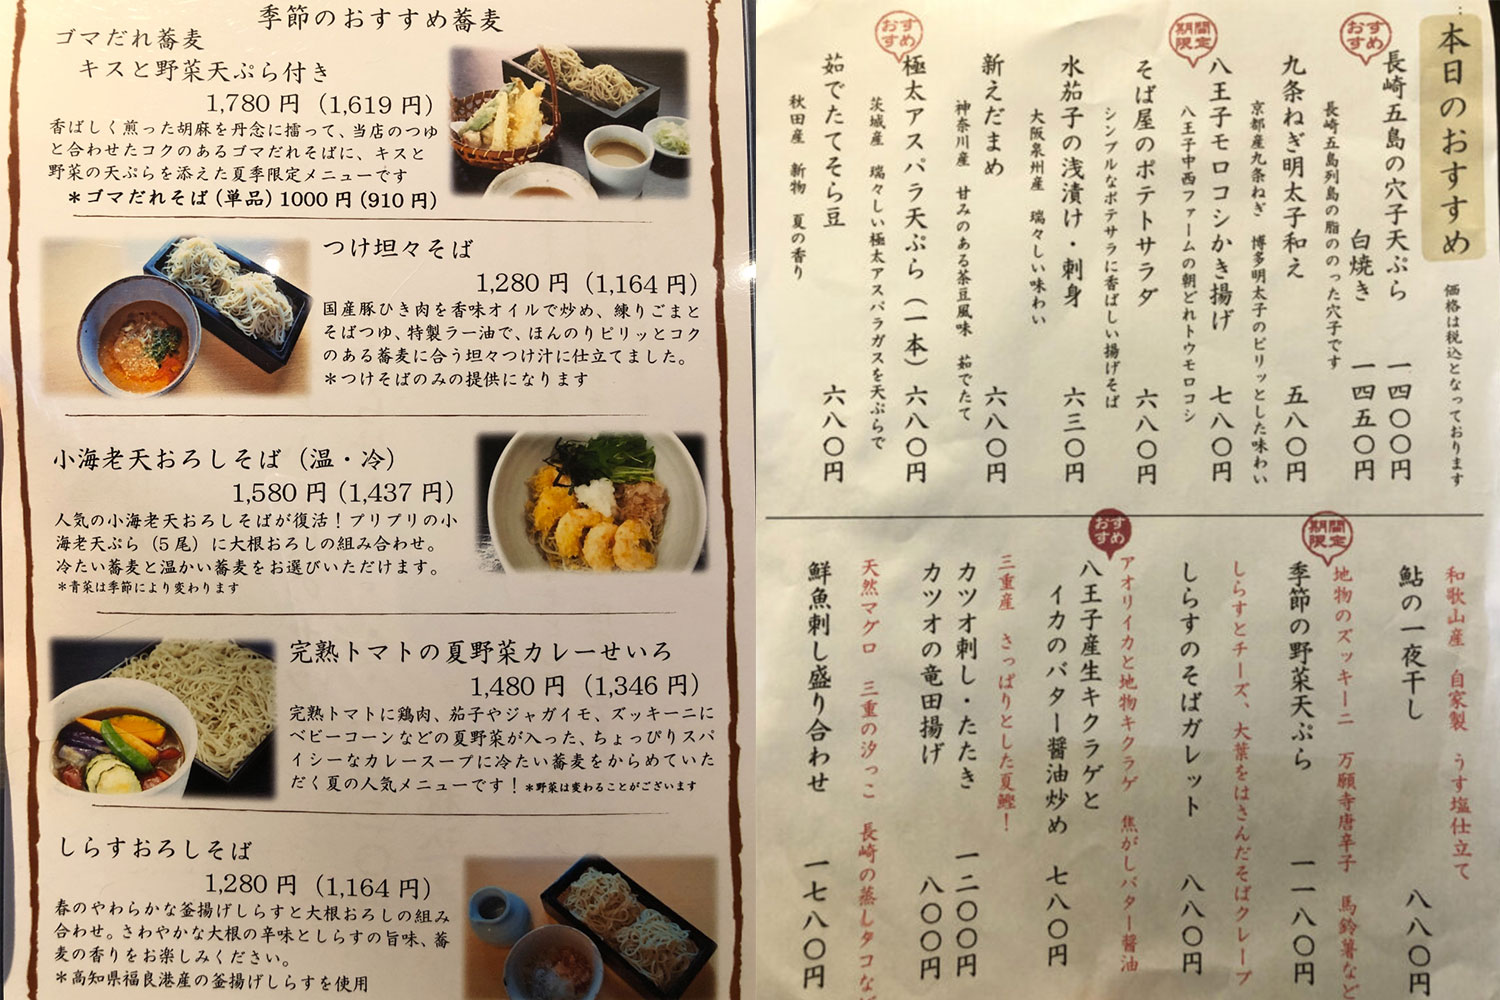 季節のおすすめ蕎麦
ゴマだれ蕎麦
キスと野菜天ぷら付き
1,780 円（1,619 円）
香ばしく煎った胡麻を丹念に擂って、当店のつゆ
と合わせたコクのあるゴマだれそばに、キスと
野菜の天ぷらを添えた夏季限定メニューです
＊ゴマだれそば（単品）1000 円（910 円）
つけ坦々そば
1,280 円（1,164 円）
国産豚ひき肉を香味オイルで炒め、練りごまと
そばつゆ、特製ラー油で、ほんのりピリッとコク
のある蕎麦に合う坦々つけ汁に仕立てました。
＊つけそばのみの提供になります
小海老天おろしそば（温・冷）
1,580 円（1,437 円）
人気の小海老天おろしそばが復活！プリプリの小
海老天ぷら（5 尾）に大根おろしの組み合わせ。
冷たい蕎麦と温かい蕎麦をお選びいただけます。
＊青菜は季節により変わります
完熟トマトの夏野菜カレーせいろ
1,480 円（1,346 円）
完熟トマトに鶏肉、茄子やジャガイモ、ズッキーニに
ベビーコーンなどの夏野菜が入った、ちょっぴりスパ
イシーなカレースープに冷たい蕎麦をからめていた
だく夏の人気メニューです！＊野菜は変わることがございます
しらすおろしそば
1,280 円（1,164 円）
春のやわらかな釜揚げしらすと大根おろしの組み
合わせ。さわやかな大根の辛味としらすの旨味、蕎
麦の香りをお楽しみください。
＊高知県福良港産の釜揚げしらすを使用
本日のおすすめ
価格は税込となっております
おすすめ
長崎五島の穴子天ぷら 一四〇〇円
白焼き 一四五〇円
長崎五島列島の脂ののった穴子です
九条ねぎ明太子和え 五八〇円
京都産九条ねぎ 博多明太子のピリッとした味わい
期間限定
八王子モロコシかき揚げ 七八〇円
八王子中西ファームの朝どれトウモロコシ
そば屋のポテトサラダ 六八〇円
シンプルなポテサラに香ばしい揚げそば
水茄子の浅漬け・刺身 六三〇円
大阪泉州産 瑞々しい味わい
新えだまめ 六八〇円
神奈川産 甘みのある茶豆風味 茹でたて
おすすめ
極太アスパラ天ぷら（一本） 六八〇円
茨城産 瑞々しい極太アスパラガスを天ぷらで
茹でたてそら豆 六八〇円
秋田産 新物 夏の香り
和歌山産 自家製 うす塩仕立て
鮎の一夜干し 八八〇円
期間限定
地物のズッキーニ 万願寺唐辛子 馬鈴薯など
季節の野菜天ぷら 一一八〇円
しらすとチーズ、大葉をはさんだそばクレープ
しらすのそばガレット 八八〇円
おすすめ
アオリイカと地物キクラゲ 焦がしバター醤油
八王子産生キクラゲと
イカのバター醤油炒め 七八〇円
三重産 さっぱりとした夏鰹！
カツオ刺し・たたき 一二〇〇円
カツオの竜田揚げ 八〇〇円
天然マグロ 三重の汐っこ 長崎の蒸しタコなど
鮮魚刺し盛り合わせ 一七八〇円